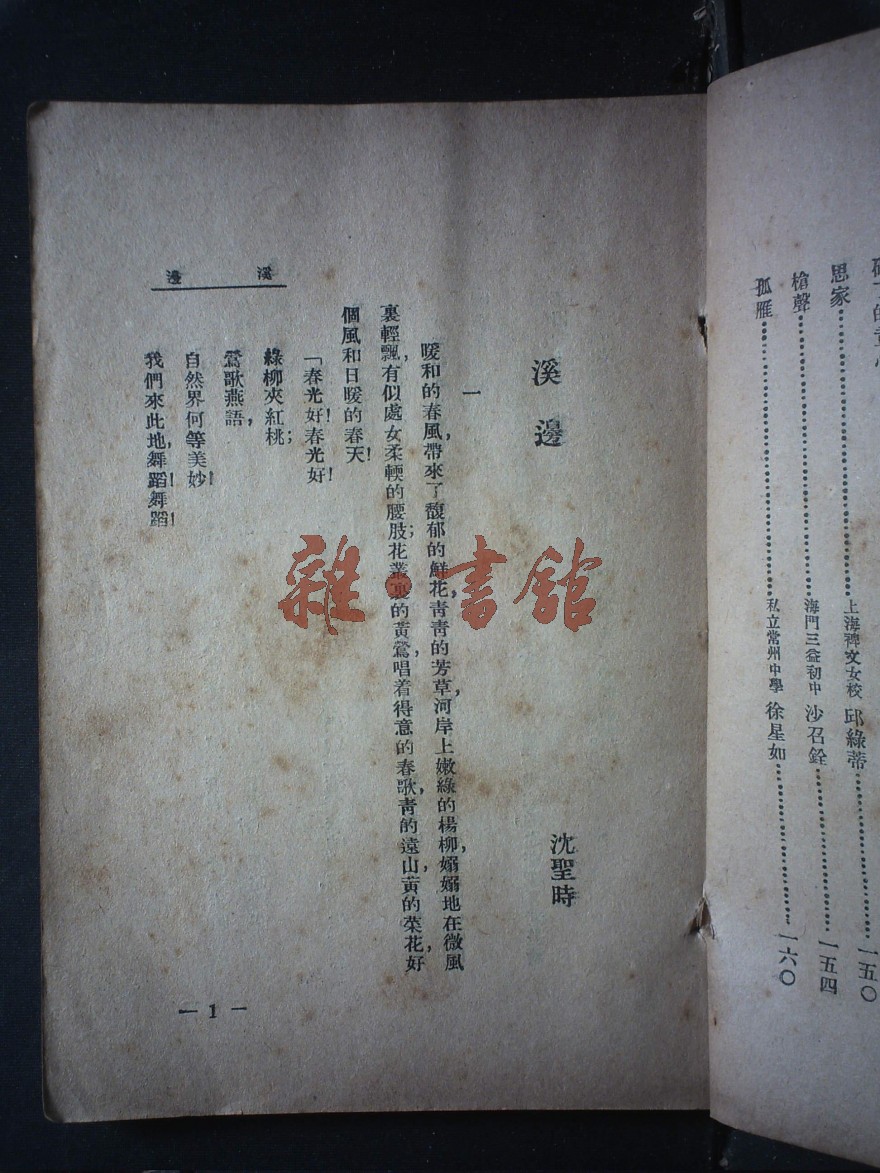 思家……上海裨文女校 邱綠蒂……一五〇
槍聲……海門三益初中 沙召銓……一五四
孤雁……私立常州中學 徐星如……一六〇
溪邊
沈聖時
一
暖和的春風，帶來了馥郁的鮮花，靑靑的芳草，河岸上嫩綠的楊柳，嫋嫋地在微風
裏輕飄，有似處女柔輭的腰肢；花叢裏的黃鶯，唱着得意的春歌，靑的遠山，黃的菜花，好
個風和日暖的春天！
「春光好！春光好！
綠柳夾紅桃；
鶯歌燕語，
自然界何等美妙！
我們來此地，舞蹈！舞蹈！
溪邊
— 1 —
雜·書館